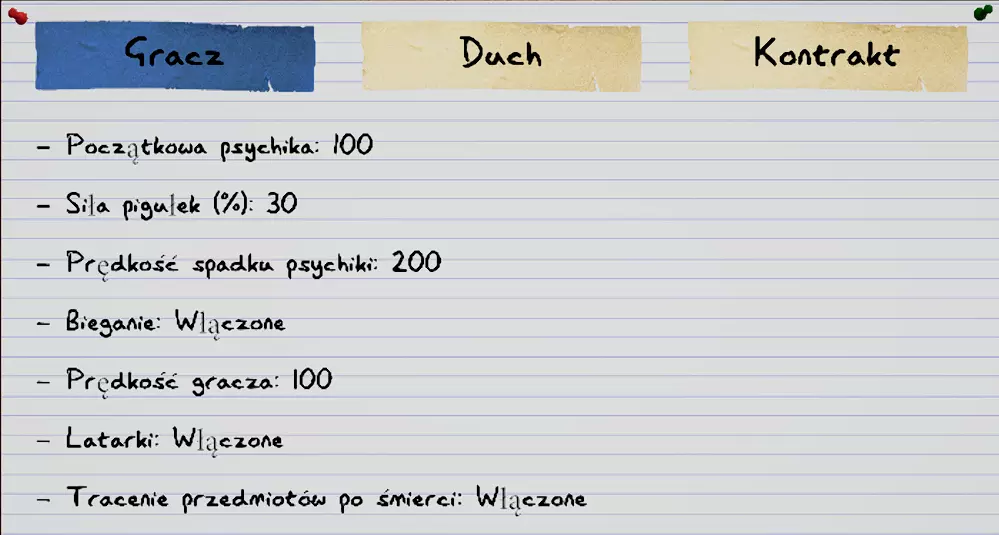 Gracz Duch Kontrakt
- Początkowa psychika: 100
- Siła pigułek (%): 30
- Prędkość spadku psychiki: 200
- Bieganie: Włączone
- Prędkość gracza: 100
- Latarki: Włączone
- Tracenie przedmiotów po śmierci: Włączone